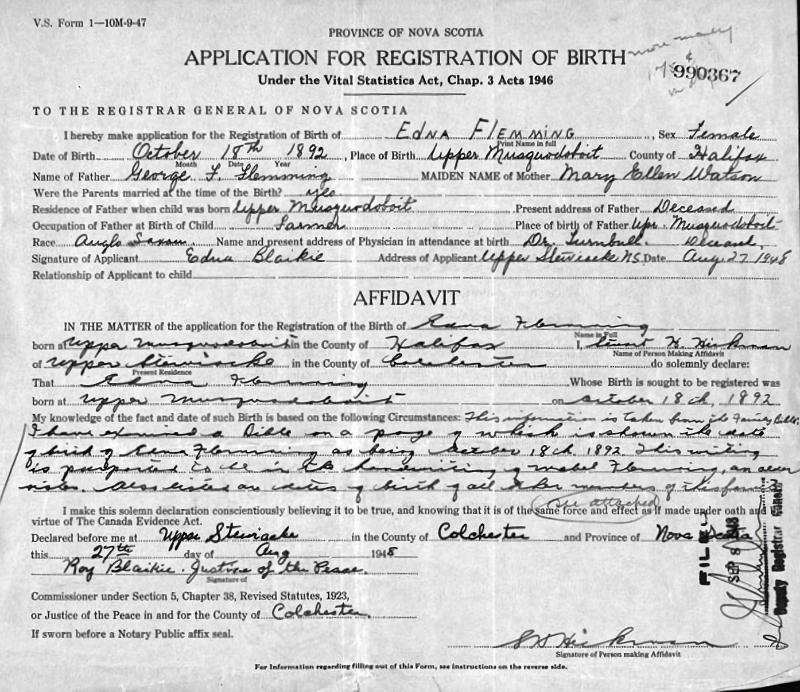 V.S. Form 1—10M-9-47
PROVINCE OF NOVA SCOTIA
APPLICATION FOR REGISTRATION OF BIRTH
990367
Under the Vital Statistics Act, Chap. 3 Acts 1946
TO THE REGISTRAR GENERAL OF NOVA SCOTIA
I hereby make application for the Registration of Birth of Edna Flemming, Sex Female
Print Name in full
Date of Birth October 18th 1892, Place of Birth Upper Musquodoboit County of Halifax
Month Date Year
Name of Father George F. Flemming MAIDEN NAME of Mother Mary Ellen Watson
Were the Parents married at the time of the Birth? yes
Residence of Father when child was born Upper Musquodoboit Present address of Father Deceased
Occupation of Father at Birth of Child Farmer Place of birth of Father Upr. Musquodoboit
Race Anglo Saxon Name and present address of Physician in attendance at birth Dr. Turnbull. Deceased
Signature of Applicant Edna Blaikie Address of Applicant Upper Stewiacke N.S. Date Aug 27 1948
Relationship of Applicant to child
AFFIDAVIT
IN THE MATTER of the application for the Registration of the Birth of Edna Flemming
Name in Full
born at Upper Musquodoboit in the County of Halifax I, Stuart H. Hickman
Name of Person Making Affidavit
of Upper Stewiacke in the County of Colchester do solemnly declare:
Present Residence
That Edna Flemming Whose Birth is sought to be registered was
born at Upper Musquodoboit on October 18th, 1892
My knowledge of the fact and date of such Birth is based on the following Circumstances: This information is taken from the Family Bible.
I have examined a Bible on a page of which is shown the date
of birth of Edna Flemming as being October 18th 1892. This writing
is purported to be in the handwriting of Mabel Flemming, an older
sister. Also listed are dates of birth of all other members of this family
(see attached)
I make this solemn declaration conscientiously believing it to be true, and knowing that it is of the same force and effect as if made under oath and
virtue of The Canada Evidence Act.
Declared before me at Upper Stewiacke in the County of Colchester and Province of Nova Scotia
this 27th day of Aug 1948
Roy Blaikie. Justice of the Peace.
Signature of
Commissioner under Section 5, Chapter 38, Revised Statutes, 1923,
or Justice of the Peace in and for the County of Colchester.
If sworn before a Notary Public affix seal.
S H Hickman
Signature of Person making Affidavit
FILED
SEP 8 1948
Deputy Registrar General
For Information regarding filling out of this Form, see instructions on the reverse side.